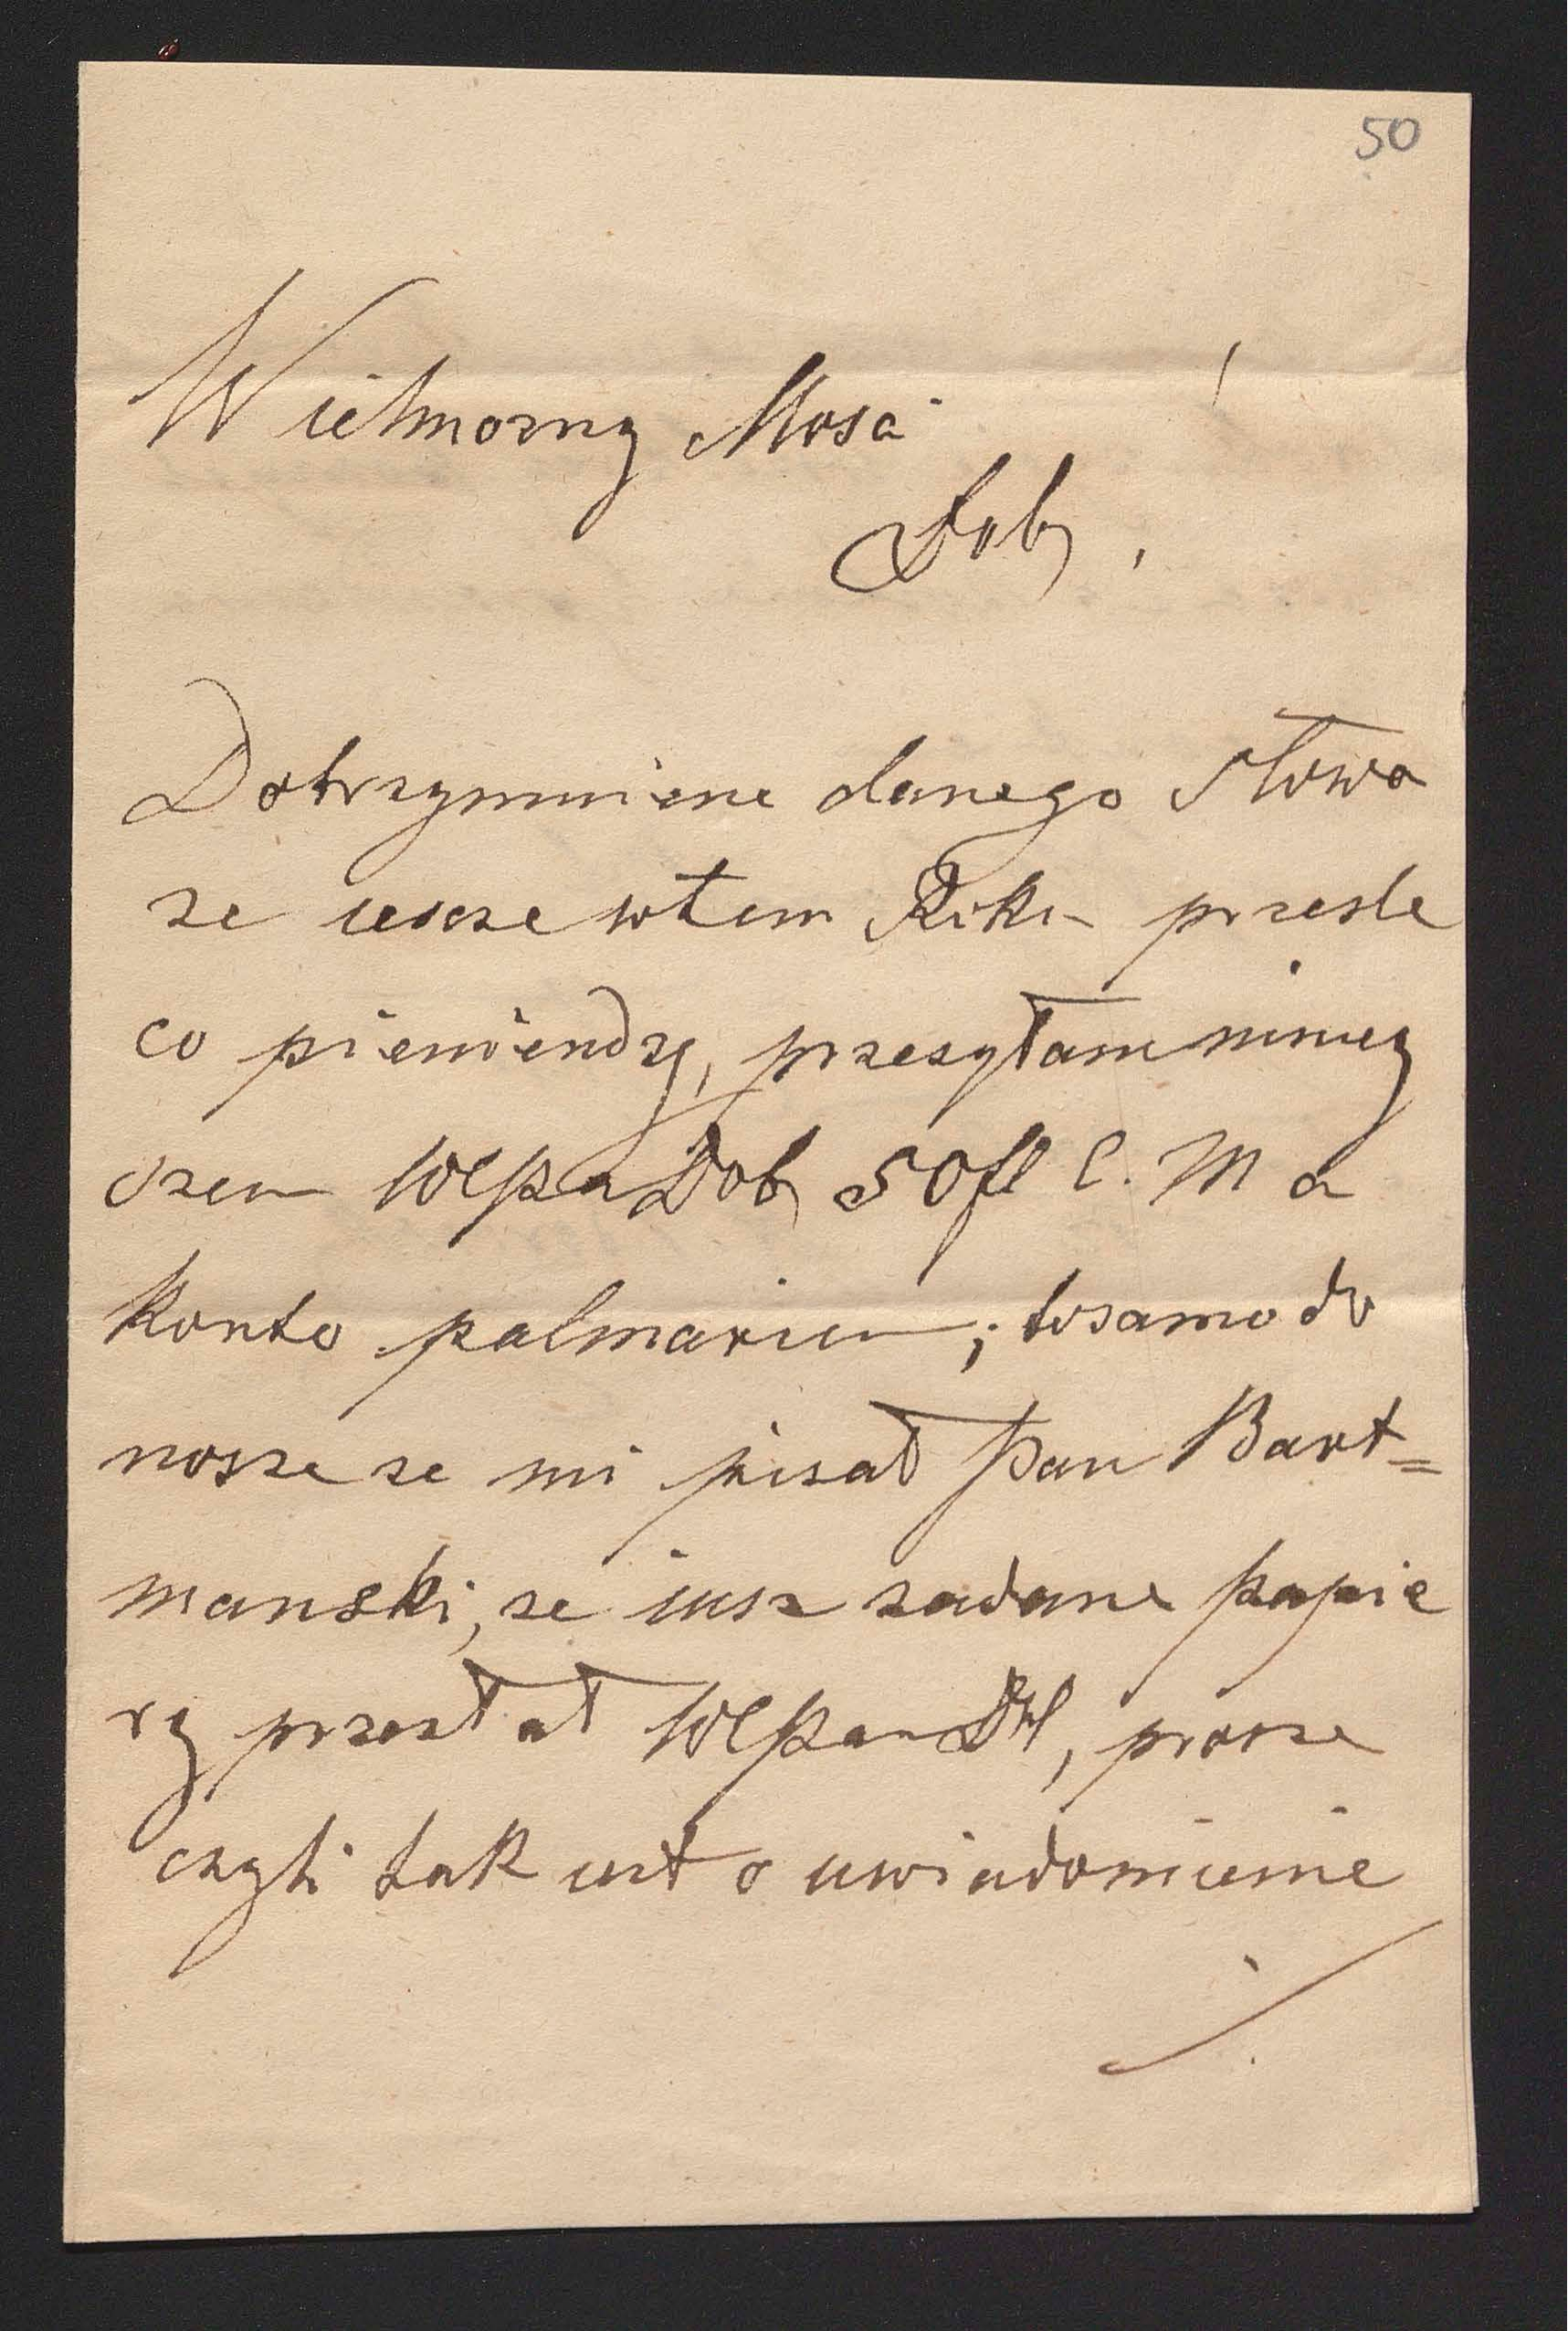 50
Wielmozny Mosci
Dob, !
Dotrzymuiene danego Słowa
ze iescze wtem Roku przesle
co pieniendzy, przesyłam niniey
szem WPan Dob 50 fl C. M a
Konto palmarium; tosamo do
nosze ze mi pisał Pan Bart=
manski, ze iusz zadane papie
ry przesłał WPan Db, prosze
czyli tak iest o uwiadomienie